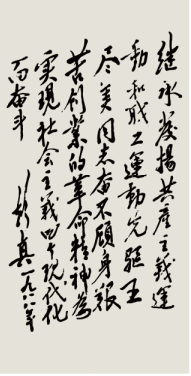 继承发扬共产主义运
动和职工运动先驱王
尽美同志奋不顾身艰
苦创业的革命精神为
实现社会主义四个现代化
而奋斗
彭真一九八八年